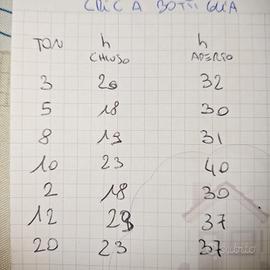 CRIC A BOTTIGLIA
TON h h
CHIUSO APERTO
3 20 32
5 18 30
8 19 31
10 23 40
2 18 30
12 23 37
20 23 37